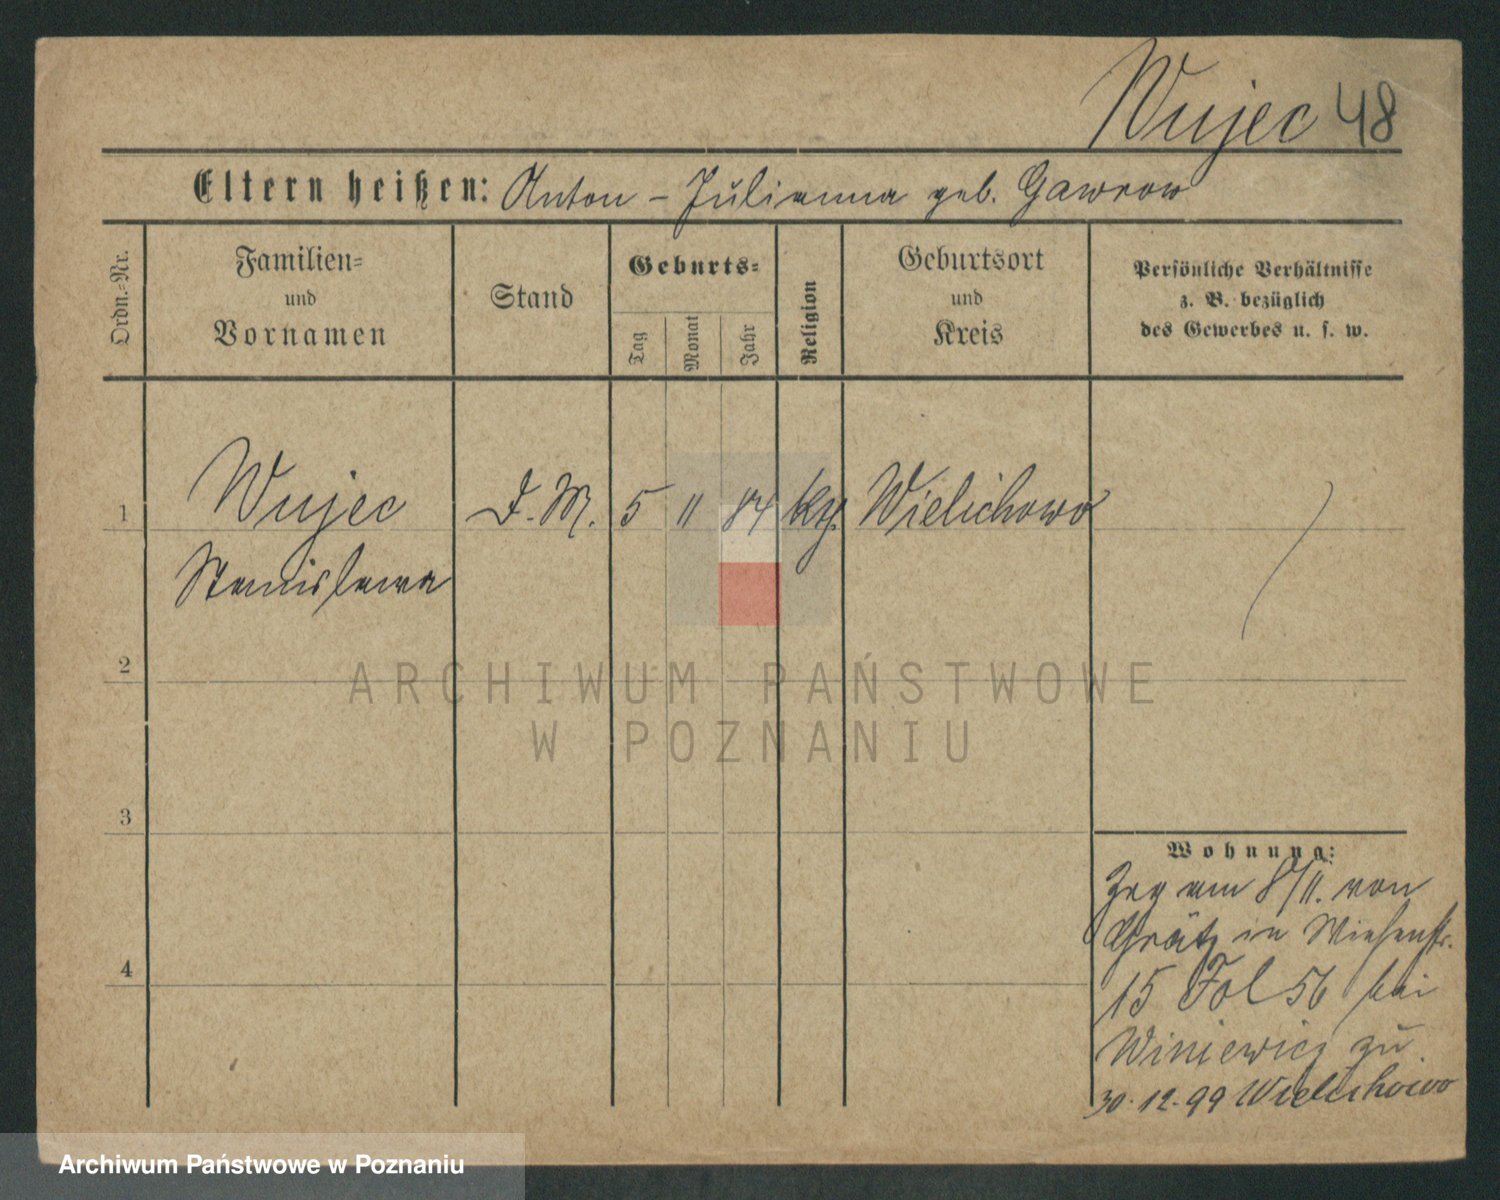 Wujec 48
Eltern heißen: Anton - Julianna geb. Gawron
Ordn.-Nr.
Familien-
und
Vornamen
Stand
Geburts-
Tag
Monat
Jahr
Religion
Geburtsort
und
Kreis
Persönliche Verhältnisse
z. B. bezüglich
des Gewerbes u. s. w.
1 Wujec D. M. 5 11 84 Wielichowo
Stanislawa
2
3
4
Wohnung:
Zug am 8/11. von
Grätz in Wiesenstr.
15 Fol 56 bei
Winiewicz zu
30.12.99 Wielichowo
ARCHIWUM PAŃSTWOWE
W POZNANIU
Archiwum Państwowe w Poznaniu